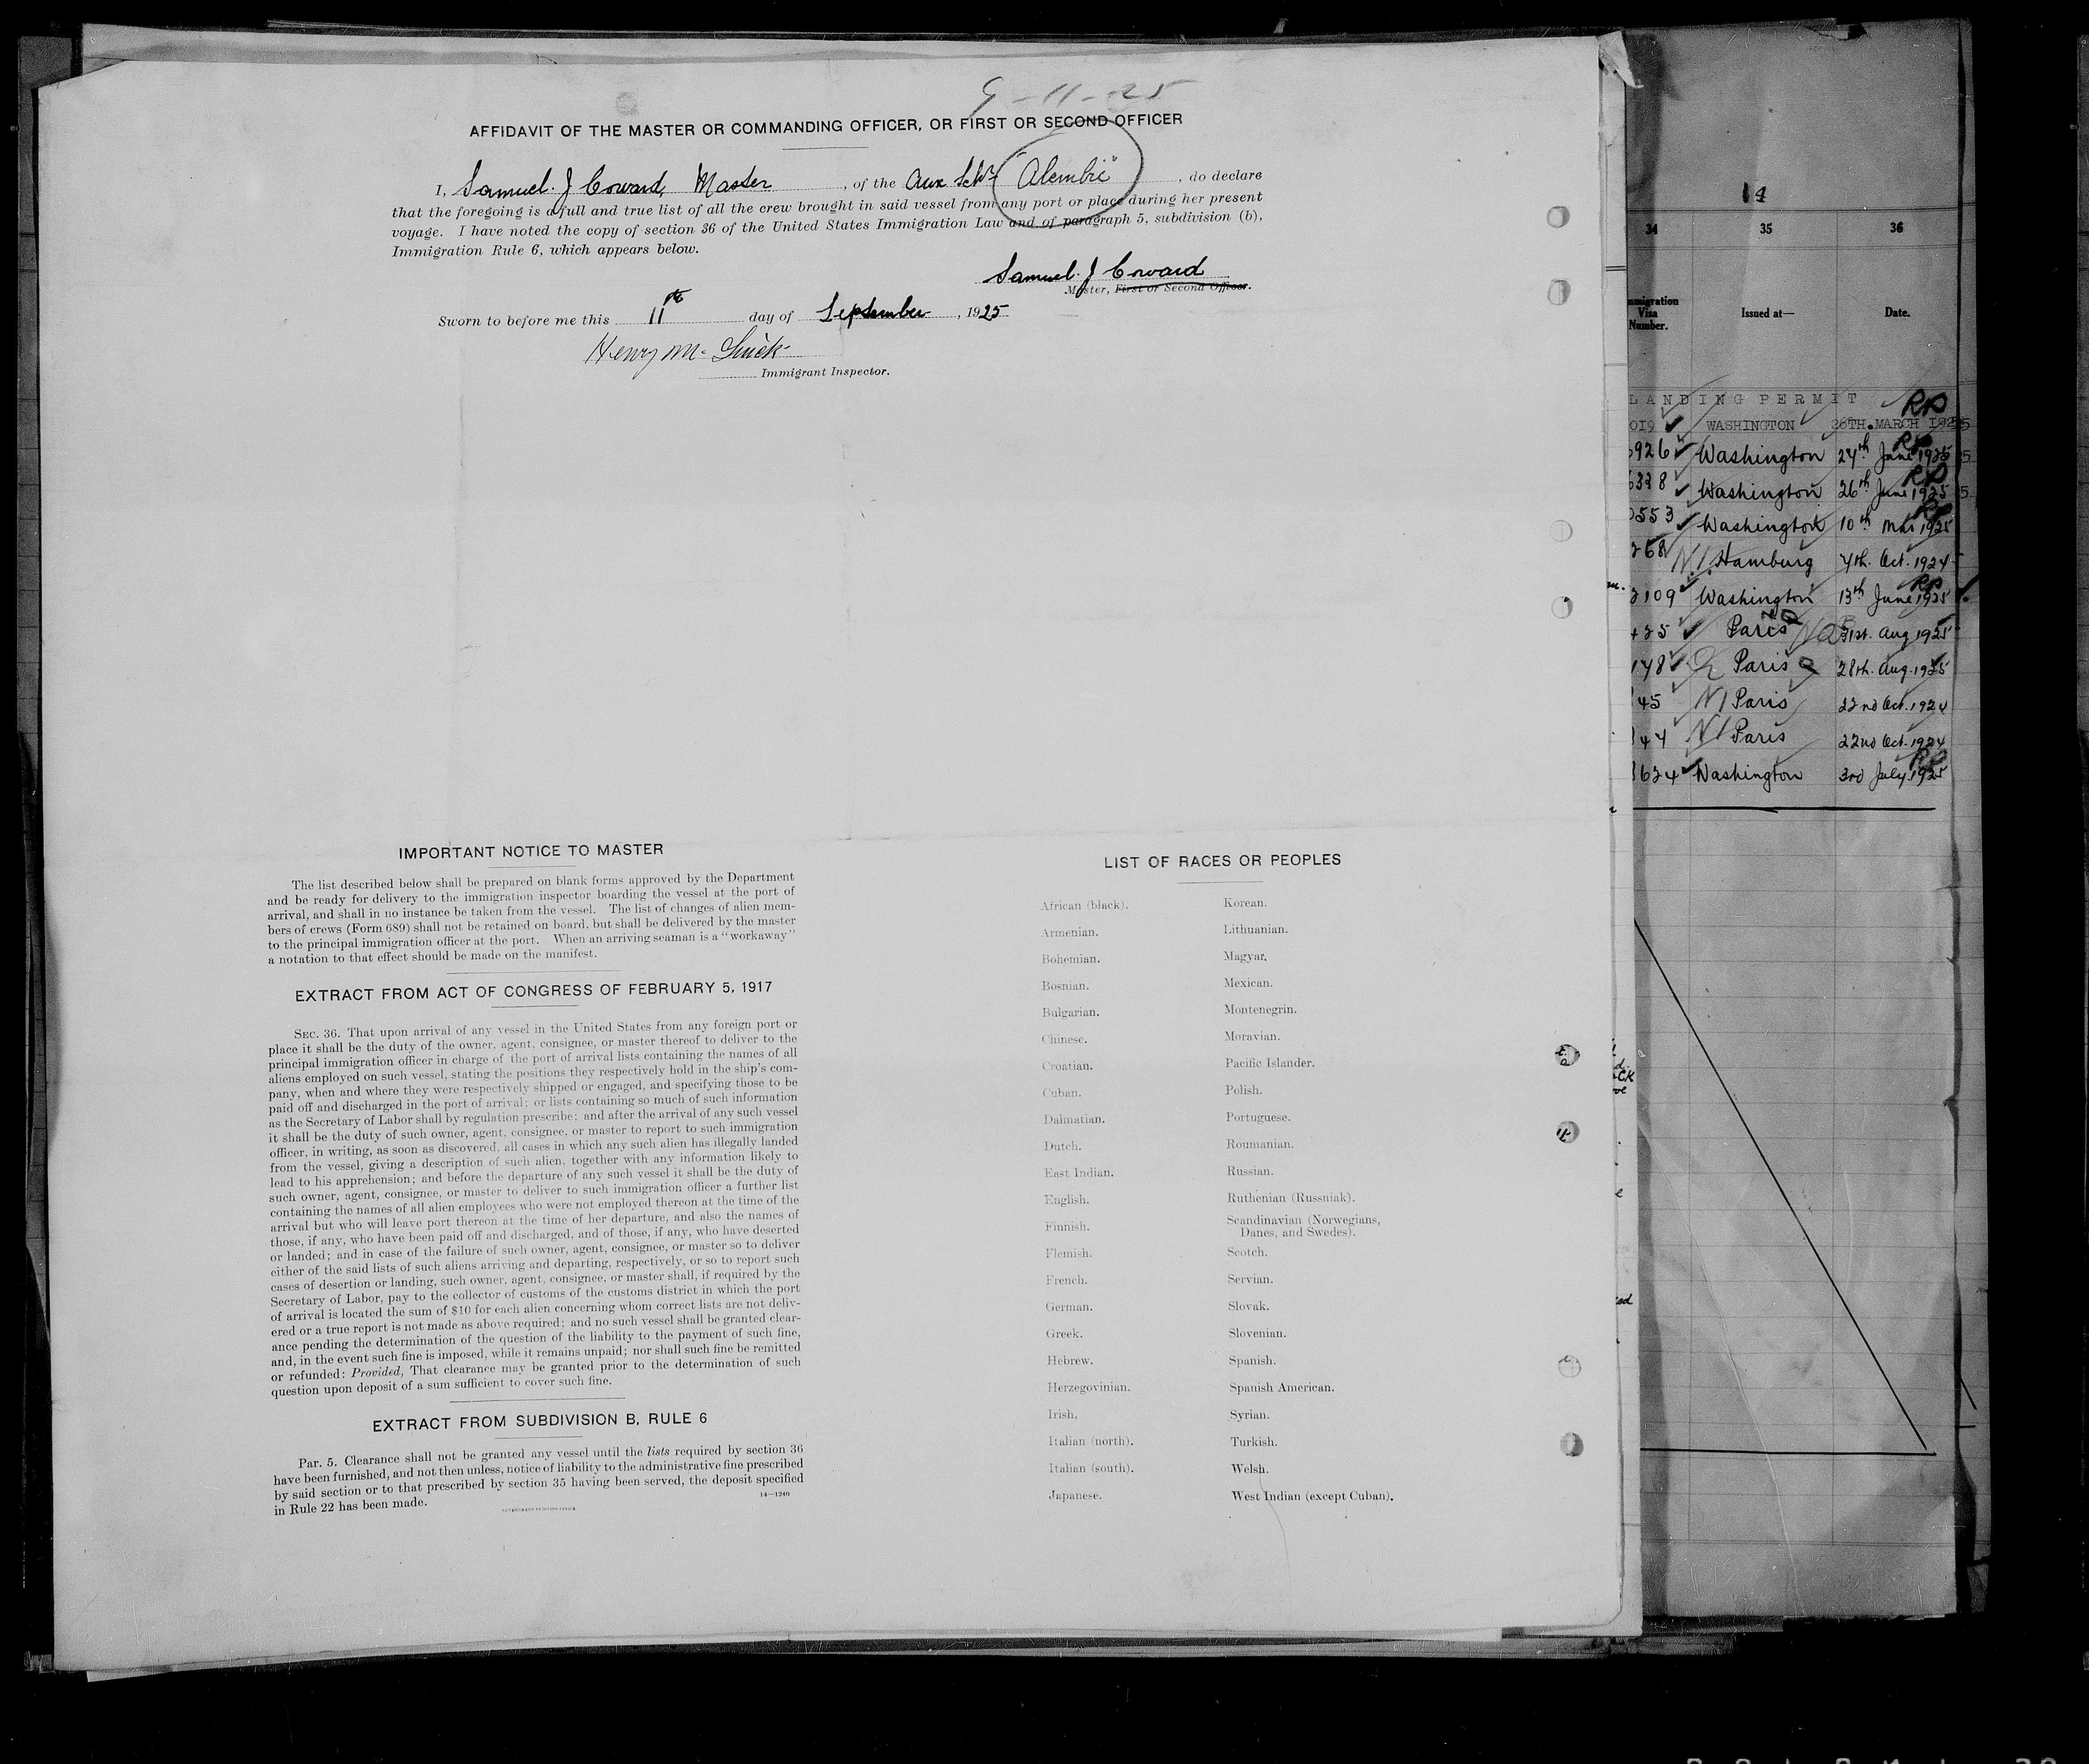 9-11-25
AFFIDAVIT OF THE MASTER OR COMMANDING OFFICER, OR FIRST OR SECOND OFFICER
I, Samuel. J Coward, Master, of the Aux Schr "Alembic", do declare
that the foregoing is a full and true list of all the crew brought in said vessel from any port or place during her present
voyage. I have noted the copy of section 36 of the United States Immigration Law and of paragraph 5, subdivision (b),
Immigration Rule 6, which appears below.
Samuel. J Coward
Master, First or Second Officer.
Sworn to before me this 11th day of September, 1925
Henry M.
Immigrant Inspector.
IMPORTANT NOTICE TO MASTER
The list described below shall be prepared on blank forms approved by the Department
and be ready for delivery to the immigration inspector boarding the vessel at the port of
arrival, and shall in no instance be taken from the vessel. The list of changes of alien mem-
bers of crews (Form 689) shall not be retained on board, but shall be delivered by the master
to the principal immigration officer at the port. When an arriving seaman is a "workaway"
a notation to that effect should be made on the manifest.
EXTRACT FROM ACT OF CONGRESS OF FEBRUARY 5, 1917
SEC. 36. That upon arrival of any vessel in the United States from any foreign port or
place it shall be the duty of the owner, agent, consignee, or master thereof to deliver to the
principal immigration officer in charge of the port of arrival lists containing the names of all
aliens employed on such vessel, stating the positions they respectively hold in the ship's com-
pany, when and where they were respectively shipped or engaged, and specifying those to be
paid off and discharged in the port of arrival; or lists containing so much of such information
as the Secretary of Labor shall by regulation prescribe; and after the arrival of any such vessel
it shall be the duty of such owner, agent, consignee, or master to report to such immigration
officer, in writing, as soon as discovered, all cases in which any such alien has illegally landed
from the vessel, giving a description of such alien, together with any information likely to
lead to his apprehension; and before the departure of any such vessel it shall be the duty of
such owner, agent, consignee, or master to deliver to such immigration officer a further list
containing the names of all alien employees who were not employed thereon at the time of the
arrival but who will leave port thereon at the time of her departure, and also the names of
those, if any, who have been paid off and discharged, and of those, if any, who have deserted
or landed; and in case of the failure of such owner, agent, consignee, or master so to deliver
either of the said lists of such aliens arriving and departing, respectively, or so to report such
cases of desertion or landing, such owner, agent, consignee, or master shall, if required by the
Secretary of Labor, pay to the collector of customs of the customs district in which the port
of arrival is located the sum of $10 for each alien concerning whom correct lists are not deliv-
ered or a true report is not made as above required; and no such vessel shall be granted clear-
ance pending the determination of the question of the liability to the payment of such fine,
and, in the event such fine is imposed, while it remains unpaid; nor shall such fine be remitted
or refunded: Provided, That clearance may be granted prior to the determination of such
question upon deposit of a sum sufficient to cover such fine.
EXTRACT FROM SUBDIVISION B, RULE 6
Par. 5. Clearance shall not be granted any vessel until the lists required by section 36
have been furnished, and not then unless, notice of liability to the administrative fine prescribed
by said section or to that prescribed by section 35 having been served, the deposit specified
in Rule 22 has been made.
14—1240
GOVERNMENT PRINTING OFFICE
LIST OF RACES OR PEOPLES
African (black).
Armenian.
Bohemian.
Bosnian.
Bulgarian.
Chinese.
Croatian.
Cuban.
Dalmatian.
Dutch.
East Indian.
English.
Finnish.
Flemish.
French.
German.
Greek.
Hebrew.
Herzegovinian.
Irish.
Italian (north).
Italian (south).
Japanese.
Korean.
Lithuanian.
Magyar.
Mexican.
Montenegrin.
Moravian.
Pacific Islander.
Polish.
Portuguese.
Roumanian.
Russian.
Ruthenian (Russniak).
Scandinavian (Norwegians,
Danes, and Swedes).
Scotch.
Servian.
Slovak.
Slovenian.
Spanish.
Spanish American.
Syrian.
Turkish.
Welsh.
West Indian (except Cuban).
14
34 35 36
mmigration Visa Number. Issued at— Date.
LANDING PERMIT RP
019 WASHINGTON 26TH. MARCH 1925
926 Washington 24th June 1925 RP
328 Washington 26th June 1925 RP
553 Washington 10th Mar 1925
268 N.I. Hamburg 4th. Oct. 1924
3109 Washington 13th June 1925 RP
425 Paris 31st. Aug 1925
148 Paris 28th. Aug. 1925
45 NI Paris 22nd Oct. 1924
44 NI Paris 22nd Oct. 1924
624 Washington 3rd July 1925